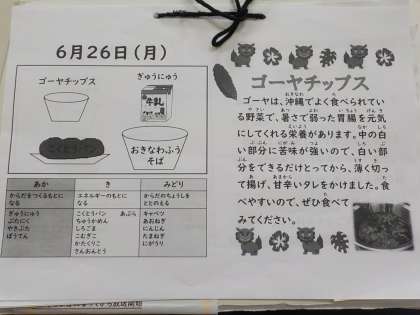 6月26日(月)
ゴーヤチップス
ぎゅうにゅう
牛乳
こくとうパン
おきなわふう
そば
あか
き
みどり
からだをつくるもとに
なる
エネルギーのもとに
なる
からだのちょうしを
ととのえる
ぎゅうにゅう
ぶたにく
やきぶた
ぼうてん
こくとうパン あぶら
ちゅうかめん
しろごま
こむぎこ
かたくりこ
さんおんとう
キャベツ
あおねぎ
にんじん
たまねぎ
にがうり
ゴーヤチップス
ゴーヤは、沖縄でよく食べられてい
る野菜で、暑さで弱った胃腸を元気
にしてくれる栄養があります。中の白
い部分に苦味が強いので、白い部
分をできるだけとってから、薄く切っ
て揚げ、甘辛いタレをかけました。食
べやすいので、ぜひ食べて
みてください。